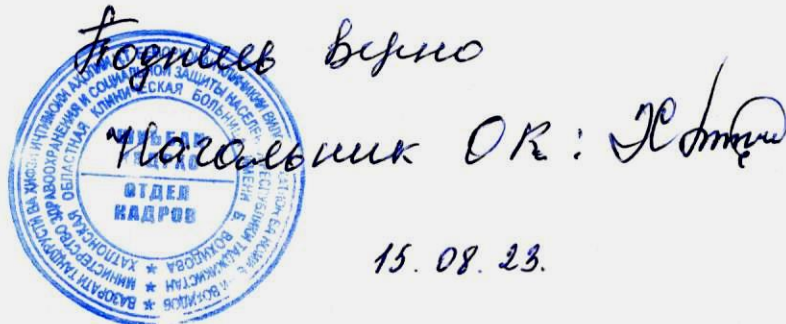 Подпись верно
Начальник ОК:
15. 08. 23.
ВАЗОРАТИ ТАНДУРУСТӢ ВА ҲИФЗИ ИҶТИМОИИ АҲОЛИИ
МИНИСТЕРСТВО ЗДРАВООХРАНЕНИЯ И СОЦИАЛЬНОЙ ЗАЩИТЫ НАСЕЛЕНИЯ РЕСПУБЛИКИ ТАДЖИКИСТАН
ХАТЛОНСКАЯ ОБЛАСТНАЯ КЛИНИЧЕСКАЯ БОЛЬНИЦА ИМЕНИ Б. ВОХИДОВА
ШУЪБАИ
КАДРҲО
ОТДЕЛ
КАДРОВ